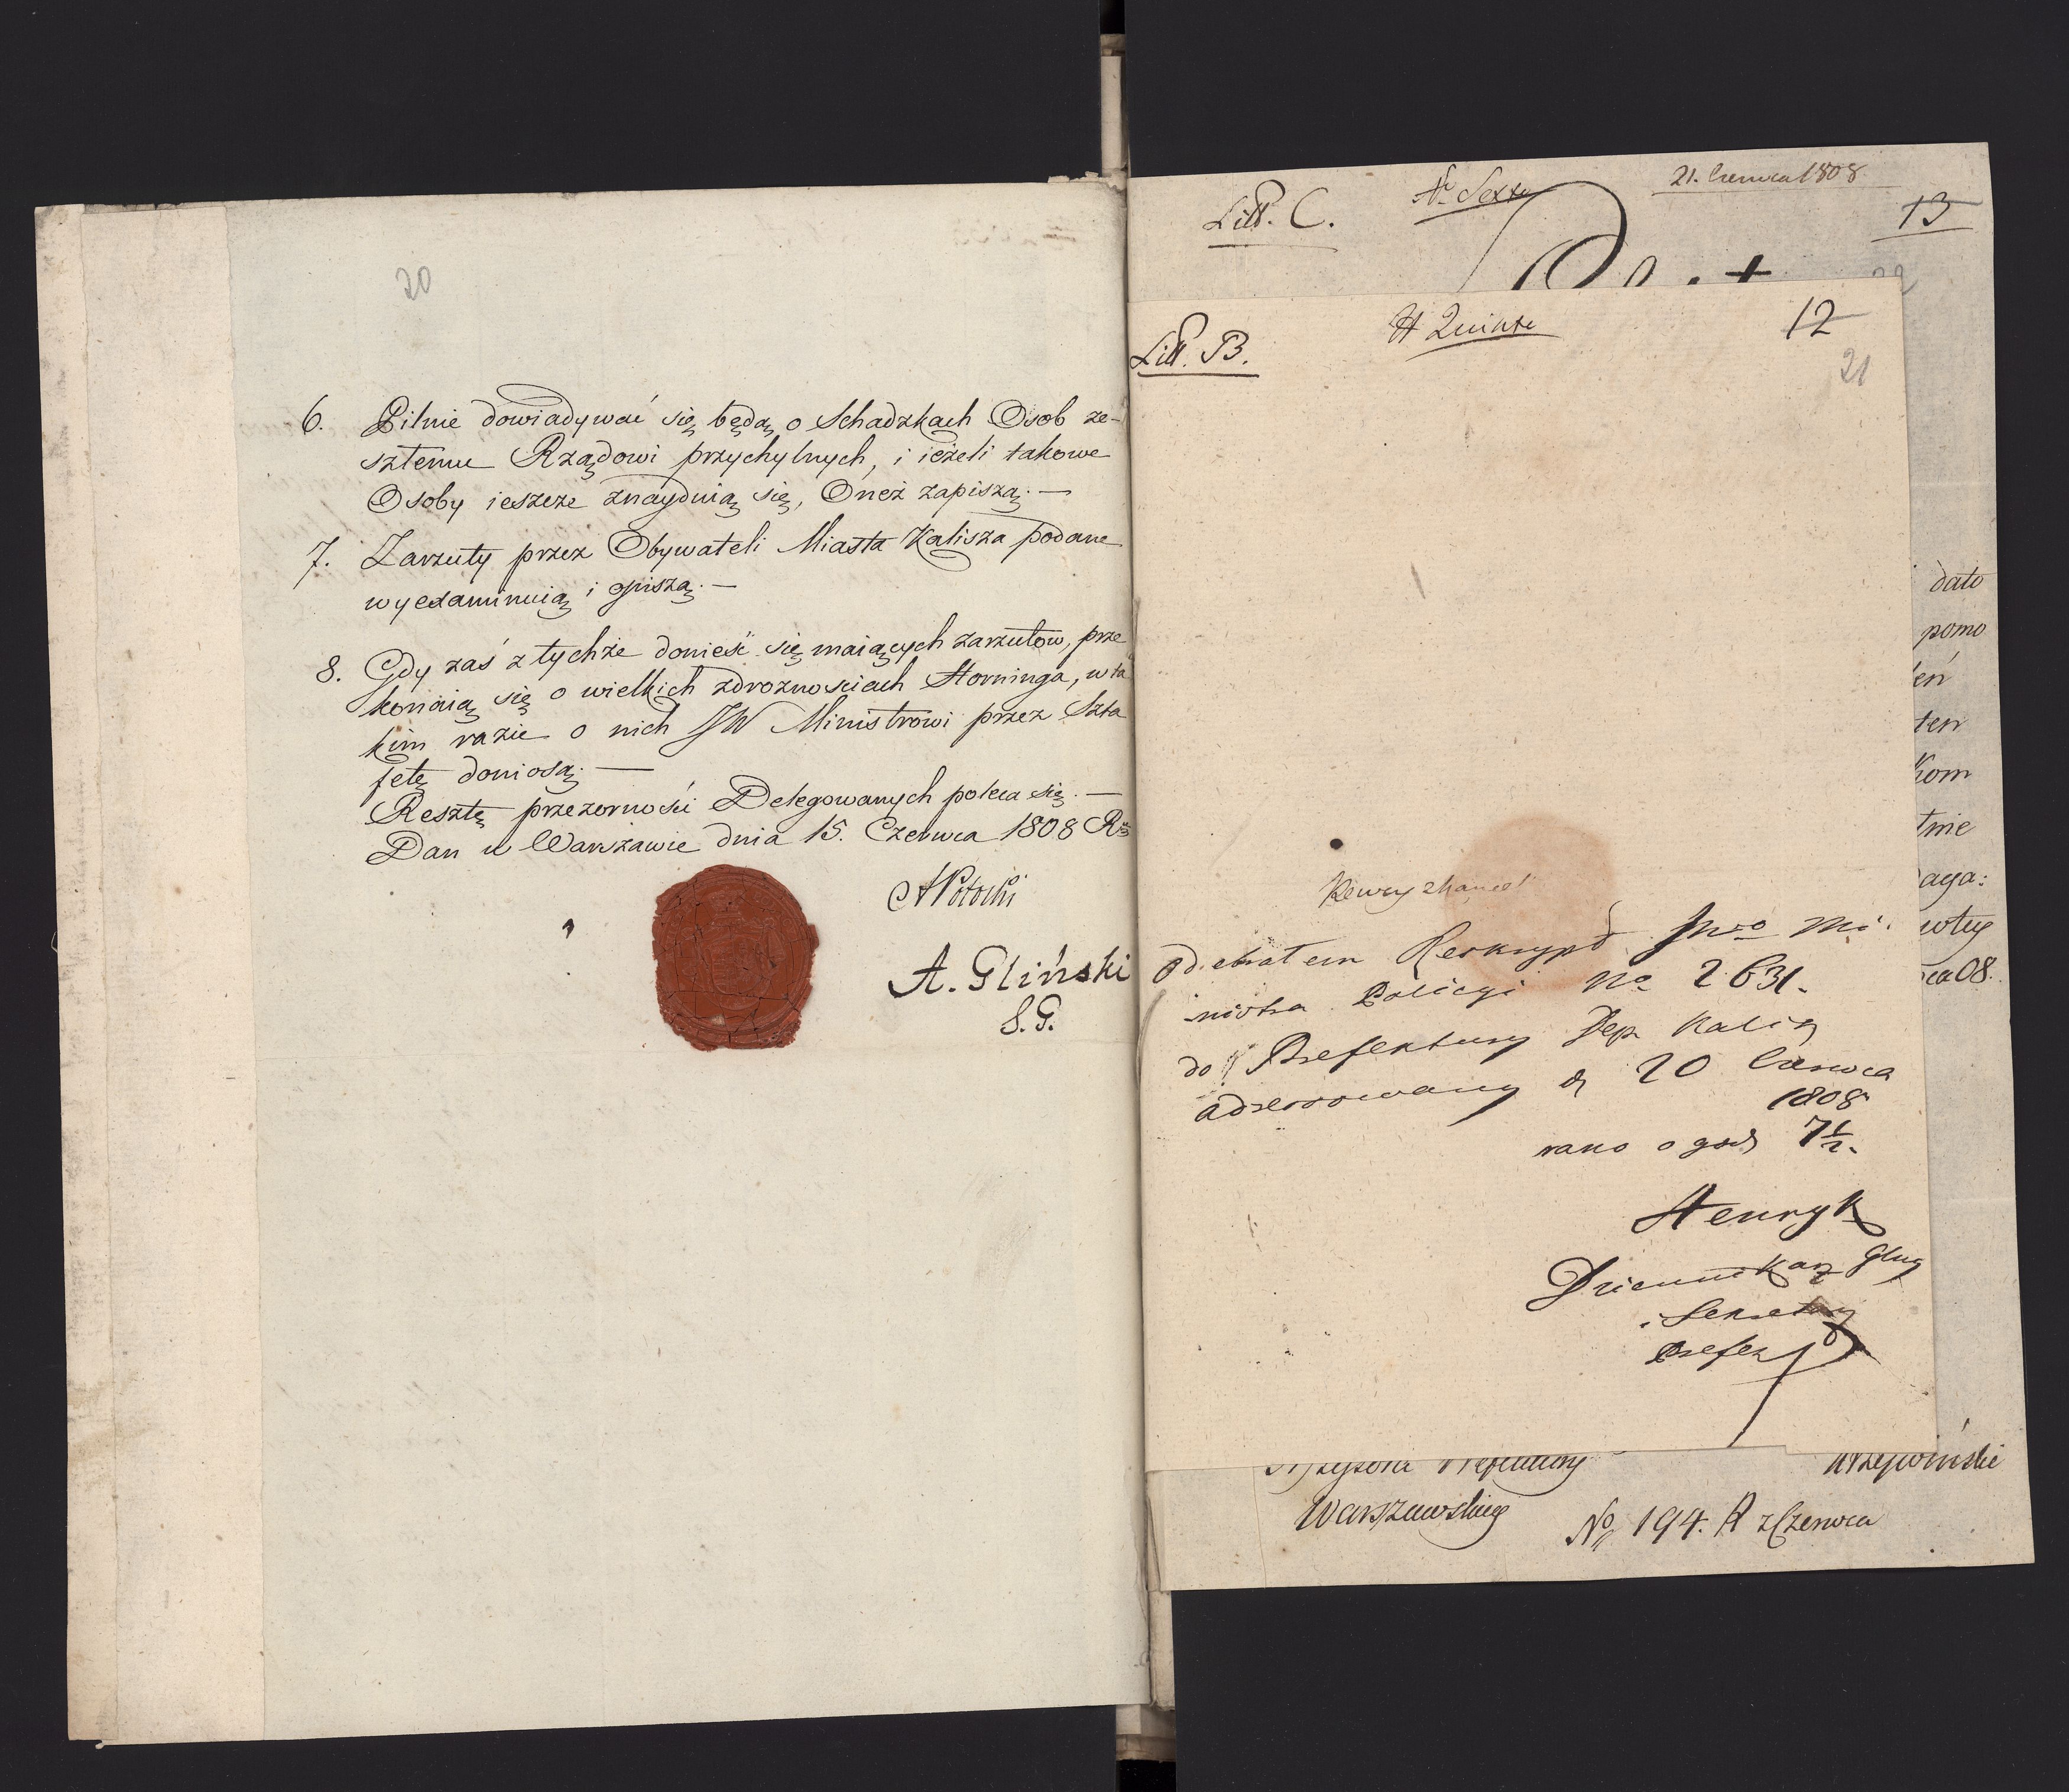 20
6. Pilnie dowiadywać się będą o Schadzkach Osob ze-
sztemu Rządowi przychylnych, i ieżeli takowe
Osoby ieszcze znayduią się, Oneż zapiszą. —
7. Zarzuty przez Obywateli Miasta Kalisza podane
wyexaminuią i spiszą. —
8. Gdy zaś z tychże donieść się maiących zarzutow, prze
konaią się o wielkich zdrożnościach Horninga, w ta
kim razie o nich JW Ministrowi przez Szta
fetę doniosą. —
Resztę przezorności Delegowanych poleca się. —
Dan w Warszawie dnia 15. Czerwca 1808 Rs
APotocki
A. Gliński
S. G.
Litt. C.
N Sexta
21. Czerwca 1808
13
Litt. B.
Quinta
12
21
Odebrałem Reskrypt Jwo Mi
nistra Policyi No 2631.
do Prefektury Dep Kalis
adressowany d 20 Czerwca
1808
rano o god 7½.
Henryk
Dziennikarz Głuy
i Sekretarz
Prefek
dato
pomo
eń
ten
Kom
tnie
aga:
wtey
ca 08.
Prefektury
Warszawskiey
Krzywiński
No 194. R z Czerwca